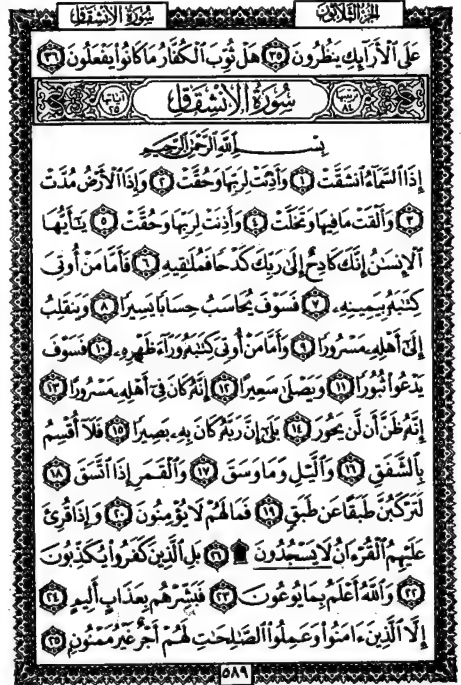 الجزء الثلاثون سُورَةُ الانْشِقَاقِ
عَلَى ٱلْأَرَآئِكِ يَنظُرُونَ ٣٥ هَلْ ثُوِّبَ ٱلْكُفَّارُ مَا كَانُوا۟ يَفْعَلُونَ ٣٦
ترتيبها ٨٤ سُورَةُ الانْشِقَاقِ آياتها ٢٥
بِسْمِ ٱللَّهِ ٱلرَّحْمَٰنِ ٱلرَّحِيمِ
إِذَا ٱلسَّمَآءُ ٱنشَقَّتْ ١ وَأَذِنَتْ لِرَبِّهَا وَحُقَّتْ ٢ وَإِذَا ٱلْأَرْضُ مُدَّتْ
٣ وَأَلْقَتْ مَا فِيهَا وَتَخَلَّتْ ٤ وَأَذِنَتْ لِرَبِّهَا وَحُقَّتْ ٥ يَٰٓأَيُّهَا
ٱلْإِنسَٰنُ إِنَّكَ كَادِحٌ إِلَىٰ رَبِّكَ كَدْحًا فَمُلَٰقِيهِ ٦ فَأَمَّا مَنْ أُوتِىَ
كِتَٰبَهُۥ بِيَمِينِهِۦ ٧ فَسَوْفَ يُحَاسَبُ حِسَابًا يَسِيرًا ٨ وَيَنقَلِبُ
إِلَىٰٓ أَهْلِهِۦ مَسْرُورًا ٩ وَأَمَّا مَنْ أُوتِىَ كِتَٰبَهُۥ وَرَآءَ ظَهْرِهِۦ ١٠ فَسَوْفَ
يَدْعُوا۟ ثُبُورًا ١١ وَيَصْلَىٰ سَعِيرًا ١٢ إِنَّهُۥ كَانَ فِىٓ أَهْلِهِۦ مَسْرُورًا ١٣
إِنَّهُۥ ظَنَّ أَن لَّن يَحُورَ ١٤ بَلَىٰٓ إِنَّ رَبَّهُۥ كَانَ بِهِۦ بَصِيرًا ١٥ فَلَآ أُقْسِمُ
بِٱلشَّفَقِ ١٦ وَٱلَّيْلِ وَمَا وَسَقَ ١٧ وَٱلْقَمَرِ إِذَا ٱتَّسَقَ ١٨
لَتَرْكَبُنَّ طَبَقًا عَن طَبَقٍ ١٩ فَمَا لَهُمْ لَا يُؤْمِنُونَ ٢٠ وَإِذَا قُرِئَ
عَلَيْهِمُ ٱلْقُرْءَانُ لَا يَسْجُدُونَ ۩ ٢١ بَلِ ٱلَّذِينَ كَفَرُوا۟ يُكَذِّبُونَ
٢٢ وَٱللَّهُ أَعْلَمُ بِمَا يُوعُونَ ٢٣ فَبَشِّرْهُم بِعَذَابٍ أَلِيمٍ ٢٤
إِلَّا ٱلَّذِينَ ءَامَنُوا۟ وَعَمِلُوا۟ ٱلصَّٰلِحَٰتِ لَهُمْ أَجْرٌ غَيْرُ مَمْنُونٍ ٢٥
٥٨٩